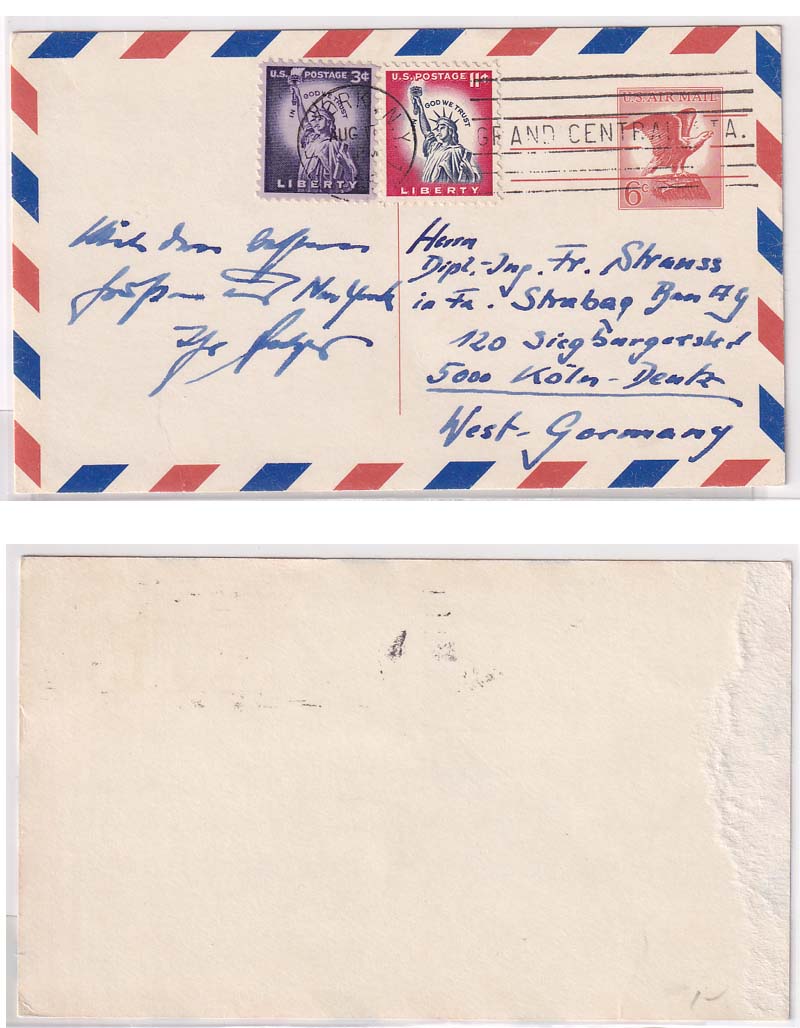 U.S. POSTAGE 3¢
IN GOD WE TRUST
LIBERTY
U.S. POSTAGE 11¢
IN GOD WE TRUST
LIBERTY
N.Y.
AUG
GRAND CENTRAL STA.
U.S. AIR MAIL
6c
Mit den besten
Grüßen aus New York
Ihr
Herrn
Dipl.-Ing. Fr. Strauss
in Fa. Strabag Bau AG
120 Siegburgerstr
5000 Köln-Deutz
West-Germany